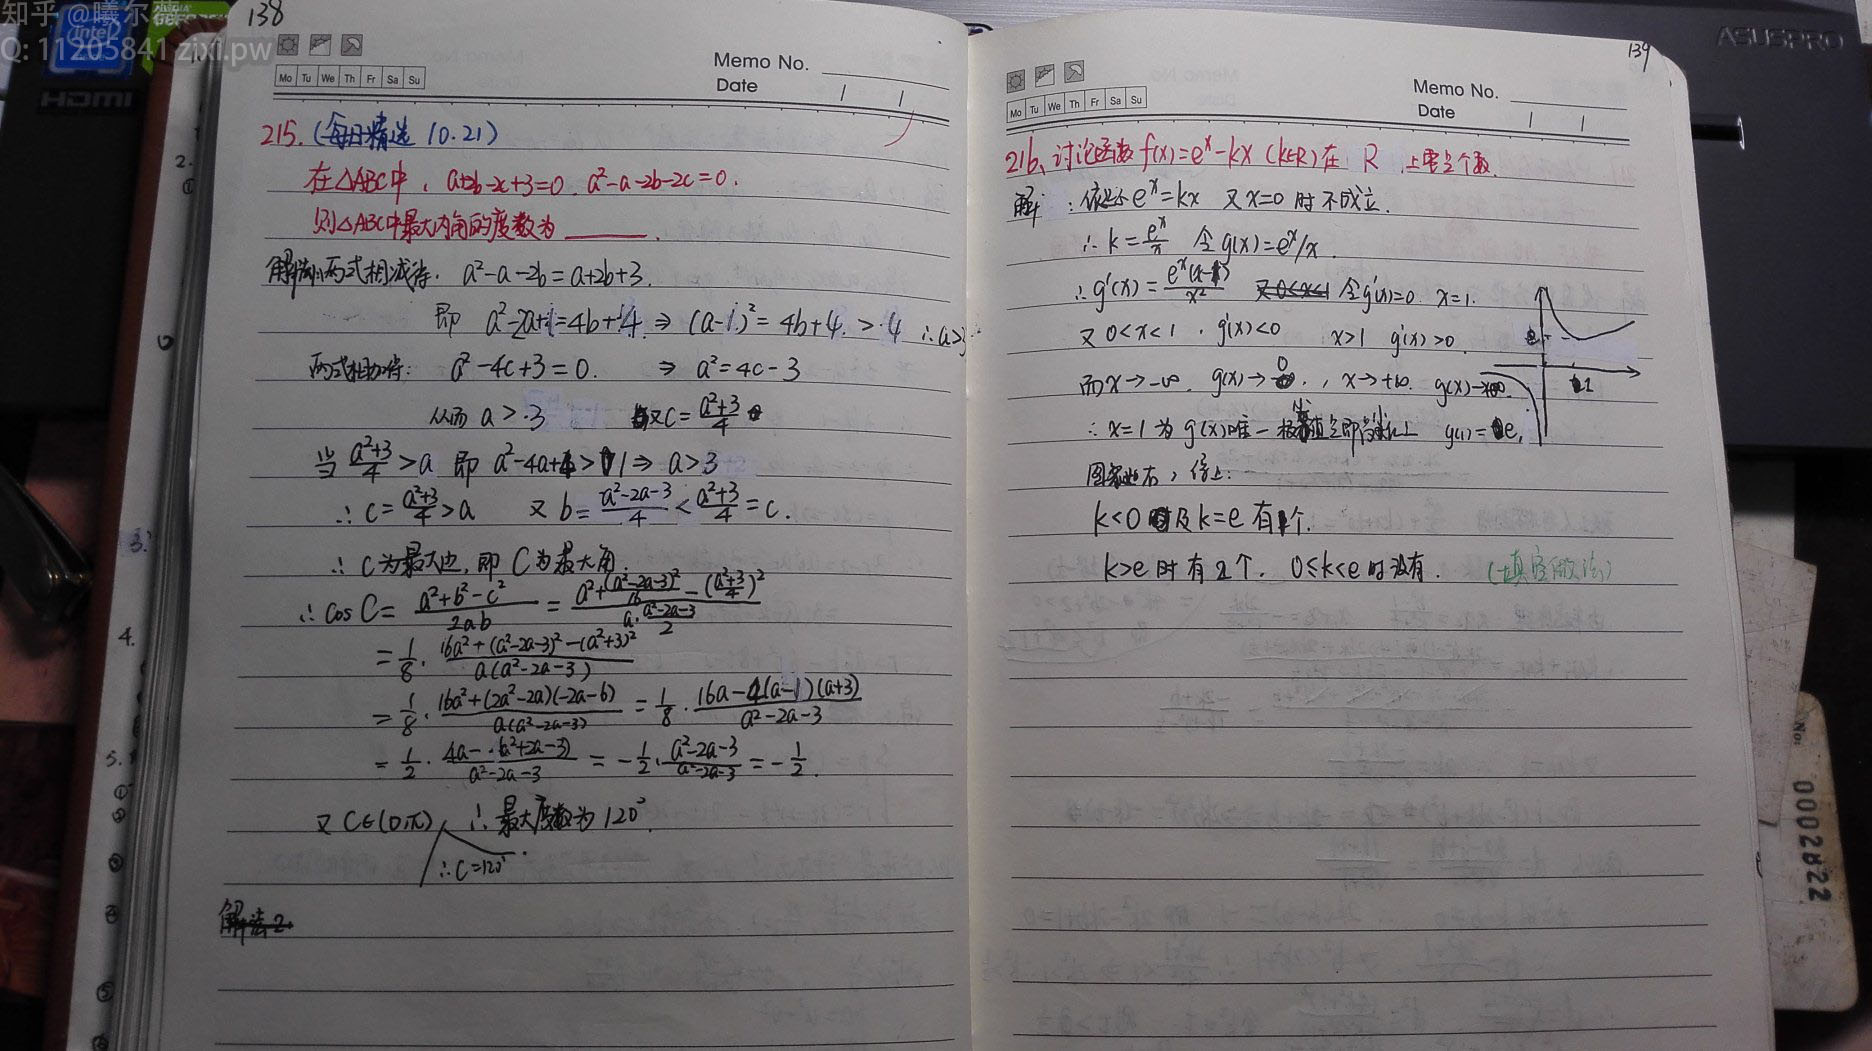 知乎 @曦尔
Q: 11205841 zixi.pw
intel
HDMI
ASUSPRO
138
Memo No.
Mo Tu We Th Fr Sa Su
Date
215. (每日精选 10.21)
在△ABC中, a+2b-2c+3=0. a²-a-2b-2c=0.
则△ABC中最大内角的度数为 ______.
两式相减得. a²-a-2b=a+2b+3.
即 a²-2a+1=4b+4. ⇒ (a-1)²=4b+4. >4 ∴a>3
两式相加得: a²-4c+3=0. ⇒ a²=4c-3
从而 a>3 又c=(a²+3)/4
当 (a²+3)/4>a 即 a²-4a+4>1 ⇒ a>3
∴ c=(a²+3)/4>a 又 b=(a²-2a-3)/4<(a²+3)/4=c.
∴ c为最大边, 即 C为最大角.
∴ cos C=(a²+b²-c²)/(2ab)=(a²+(a²-2a-3)²/16-((a²+3)/4)²)/(a·(a²-2a-3)/2)
=1/8·(16a²+(a²-2a-3)²-(a²+3)²)/(a(a²-2a-3))
=1/8·(16a²+(2a²-2a)(-2a-6))/(a(a²-2a-3))=1/8·(16a-4(a-1)(a+3))/(a²-2a-3)
=1/2·(4a-(a²+2a-3))/(a²-2a-3)=-1/2·(a²-2a-3)/(a²-2a-3)=-1/2.
又 C∈(0,π) ∴ 最大度数为 120°.
∴C=120°
解法2
139
Memo No.
Mo Tu We Th Fr Sa Su
Date
216. 讨论函数 f(x)=eˣ-kx (k∈R) 在 R 上零点个数.
解: eˣ=kx 又 x=0 时不成立.
∴ k=eˣ/x 令 g(x)=eˣ/x.
∴ g'(x)=eˣ(x-1)/x² 又0<x<1 令g'(x)=0. x=1.
又 0<x<1, g'(x)<0 x>1 g'(x)>0.
而 x→-∞. g(x)→0, x→+∞. g(x)→+∞.
∴ x=1 为 g(x)唯一极小值点 g(1)=e,
e
1
图象如右,
k<0 及 k=e 有1个.
k>e 时有2个. 0≤k<e 时没有. (填空做法)
No: 0002822